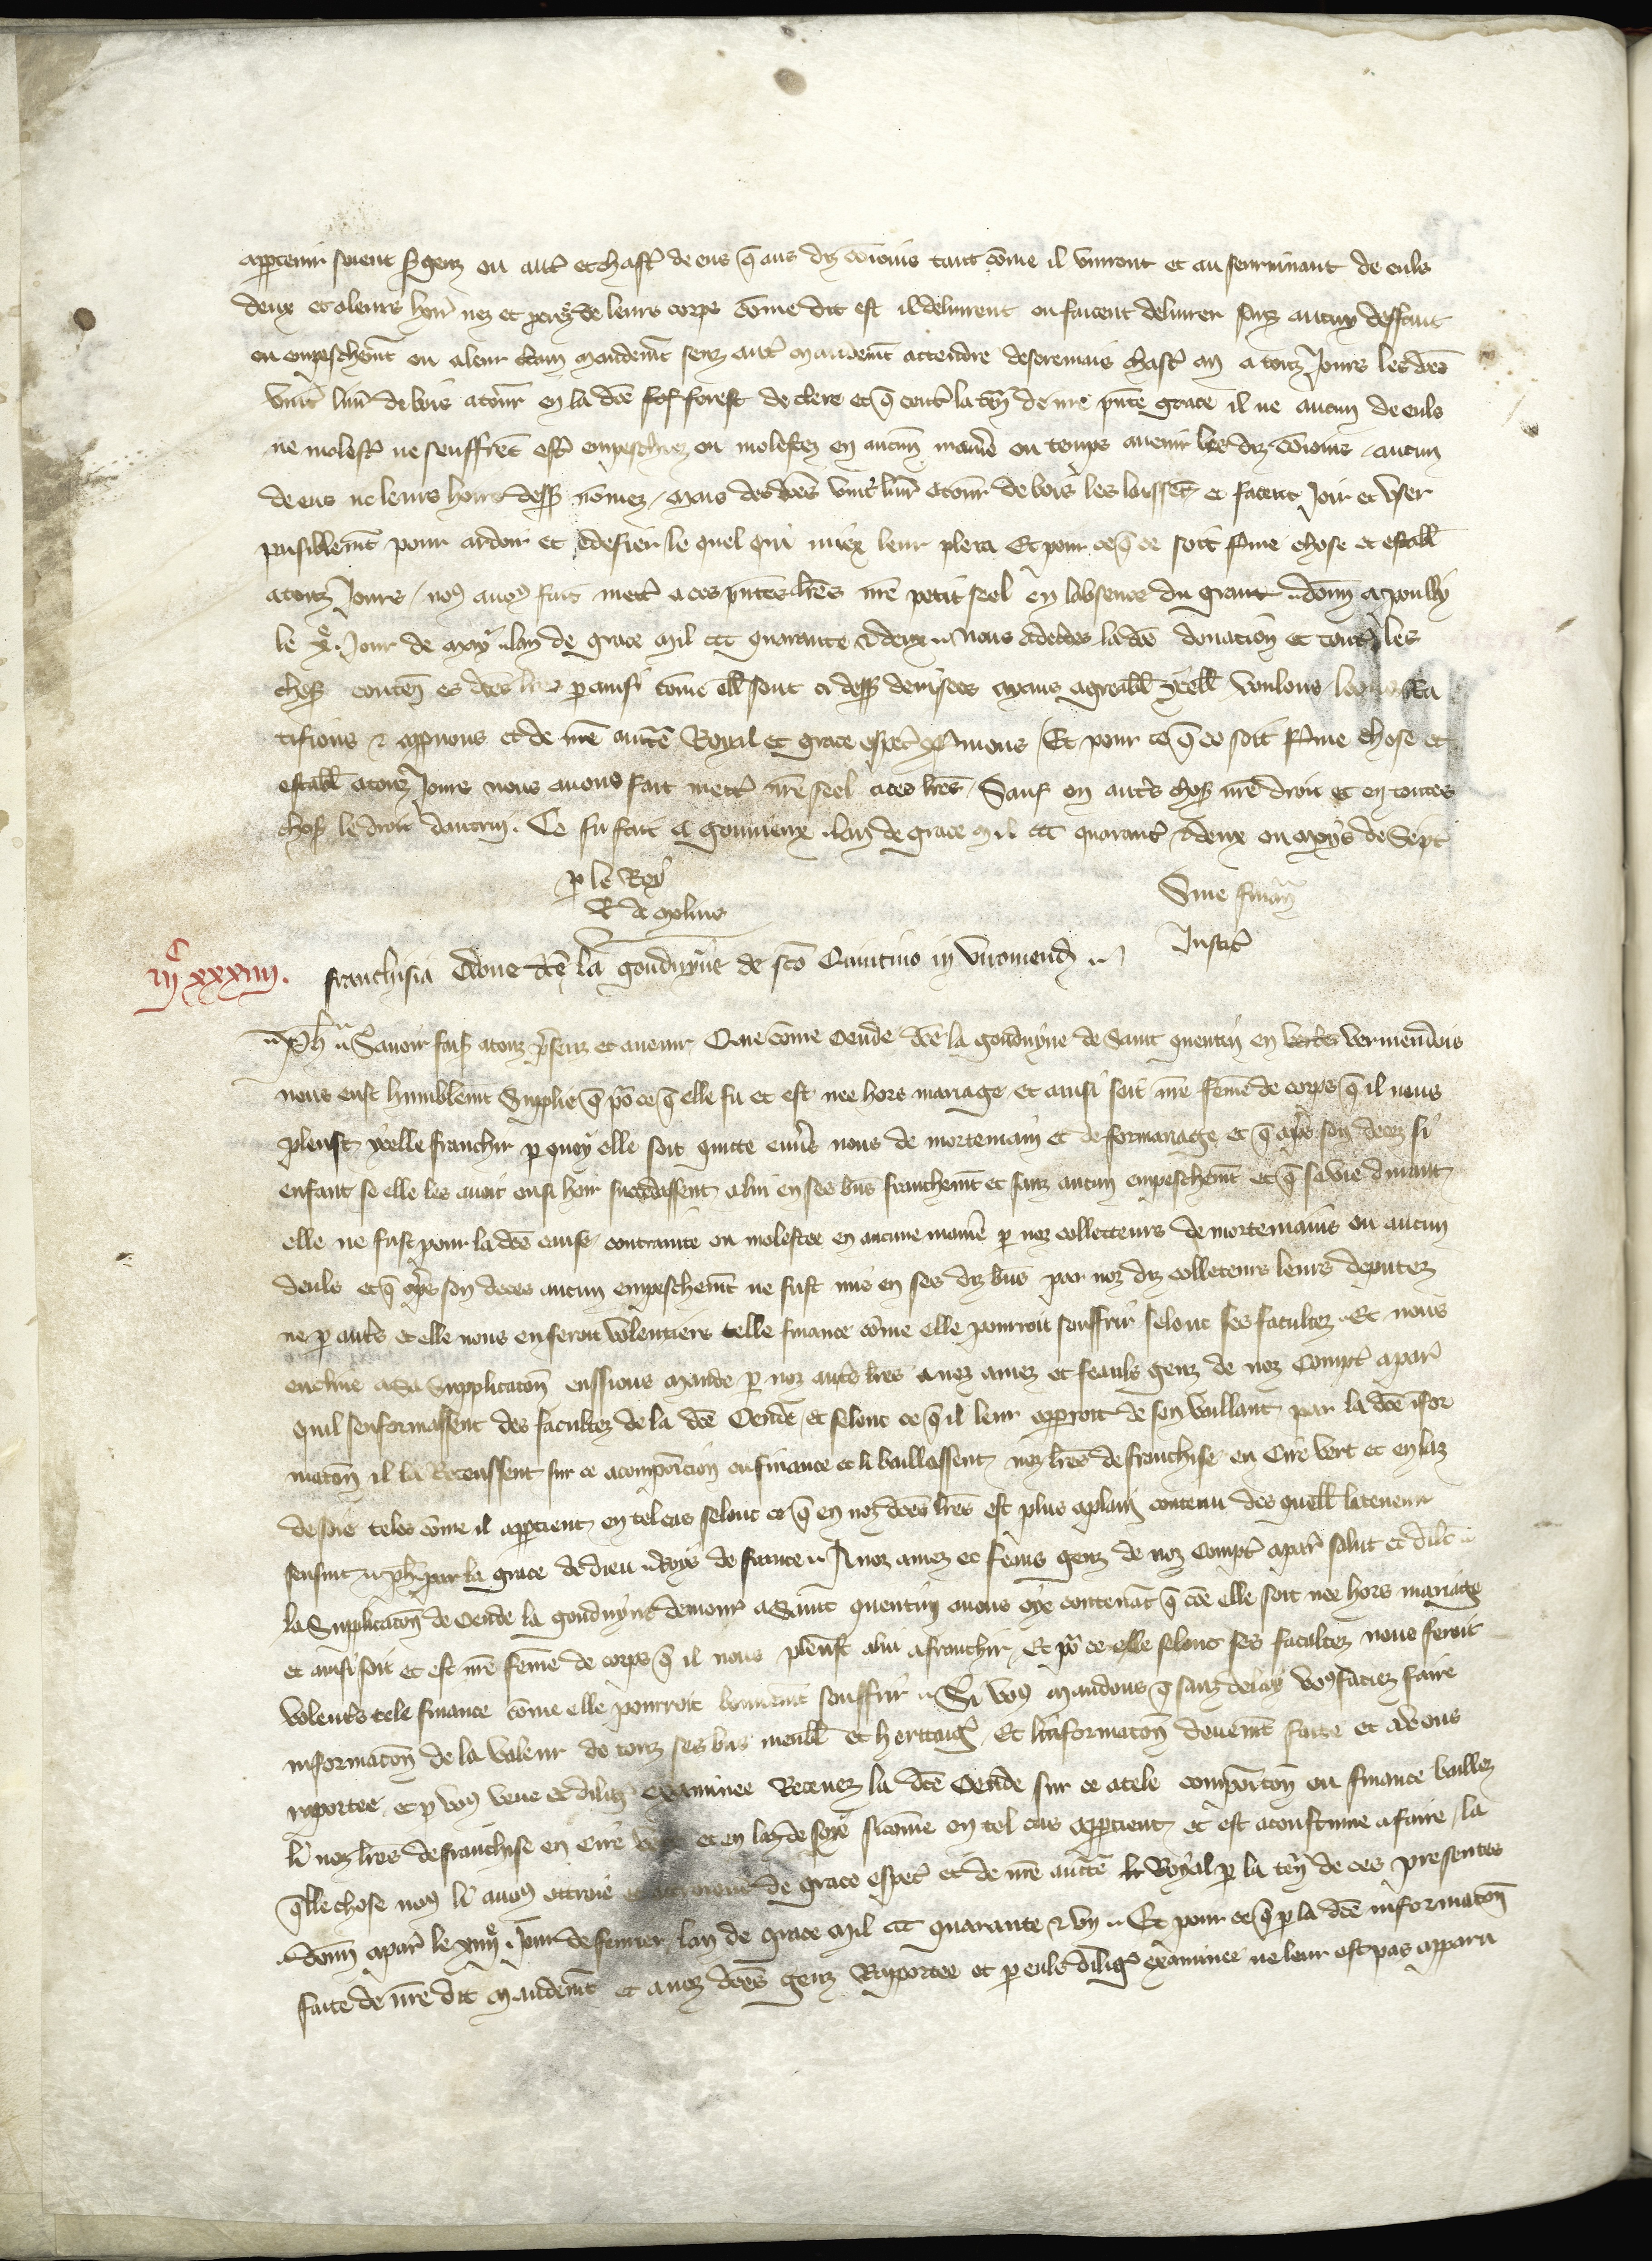 appartenir soient sergenz ou autr et chastr de eus q̃ aus diz cōioins tant cōme il viuront et au seuruiuant de euls
deux et a leurs hoirs nez et de leurs corps cōme dit est il deliurent ou facent deliurer sanz aucun deffaut
ou empeschemt ou aleur mandemt senz autr mandemt attendre desoremais chascr an a touz jours les dces
vint liur de bois a tour en la dce forest de clere et q̃ contr la tenr de nre pnte grace il ne aucun de euls
ne molestr ne seuffret estr empeschez ou molestez en aucun maniere ou temps auenir les diz cōioins aucun
de eus ne leurs hoirs dess nōmez mais des dces vint liur et tour de bois les laisset et facent joir et vser
paisiblemt pour ardoir et edefier le quel qui miex leur plera Et pour ce q̃ ce soit ferme chose et establ
a touz jours nos auos fait mettr a ces pntes lres nre petit seel en labsence du grant donn a poully
le xe jour de may lan de grace mil ccc quarante & deux nous adecertes la dce donation et toutes les
choses conten es dces lres p ainsi come ell sont ci dess deuisees aians agreabl ycell voulons
tifions & approuons et de nre aucte Royal et grace especr confermons Et pour ce q̃ ce soit ferme chose et
establ a touz jours nous auons fait mettr nre seel a ces lres Sauf en autrs choses nre droit et en toutes
choses le droit dautrui. Ce fu fait a gouuieux lan de grace mil ccc quarantr & deux ou moys de Septr
p le Roy
R de molins
Sine finan
Justicr
iijc xxxiiij.
franchisia Oēde dce la gouduyne de sco Quintino in viromend
Ph Sauoir faisons a touz presenz et auenir Que cōme oende dce la gouduyne de Saint quentin en vermendois
nous eust humblemt Supplie q̃ po ce q̃ elle fu et est nee hors mariage et ainsi soit nre feme de corps q̃ il nous
pleust ycelle franchir p quoy elle soit quitte enuers nous de mortemain et de formariage et q̃ apres son deces si
enfant se elle les auoit ou si hoir succedassent a lui en ses bns franchemt et sanz aucun empeschemt et q̃ sa vie durant
elle ne fust pour la dce cause contrainte ou molestee en aucune maniere p noz collecteurs de mortemains ou aucun
deuls et q̃ apres son deces aucun empeschemt ne fust mis en ses diz bns par noz diz collecteurs leurs deputez
ne p autrs et elle nous en feroit volentiers telle finance cōme elle pourroit souffrir selonc ses facultez Et nous
encline a sa Supplicaton eussions mande p noz autrs lres a noz amez et feauls genz de noz Comptr a parr
quil senformassent des facultez de la dce Oende et selonc ce q̃ il leur apparroit de son vaillant par la dce ifor
maton il la Receussent sur ce a composicion ou finance et li baillassent noz lres de franchise en Cire vert et en laz
de soie teles cōme il appartient en tel cas selonc ce q̃ en noz dces lres est plus a plain contenu des quell la teneur
sensuit ph par la grace de dieu Roys de france A noz amez et feaus genz de noz Comptr a parr salut et dilec
la Supplicaton de oende la gouduyne demour a Saint quentin auons oye contenat q̃ cōe elle soit nee hors mariage
et ainsi soit et est nre feme de corps q̃ il nous pleust a lui afranchir Et po ce elle selonc ses facultez nous feroit
volentrs tele finance cōme elle pourroit bonnemt souffrir Si vous mandons q̃ sanz delay vous faciez faire
informaton de la valeur de touz ses bns meubl et heritaig Et linformaton deuemt faite et a vous
raportee et p vous veue et dilig examinee Receuez la dce Oende sur ce a tele compositon ou finance baillez
li noz lres de franchise en Cire et en laz de soye si come en tel cas appartient et est acoustume a faire la
qlle chose nous li auos ottroie et de grace especr et de nre aucte Royal p la tenr de ces presentes
donn a parr le xiiije jour de feurier lan de grace mil ccc quarante & vn Et pour ce q̃ p la dce informaton
faite de nre dit mandemt et a noz dces genz Raportee et p euls dilig examinee ne leur est pas apparu